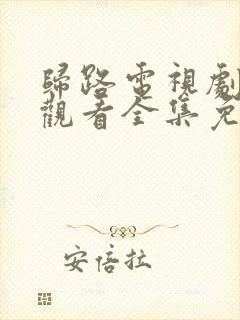 歸路電視劇
觀看全集免
安倍拉